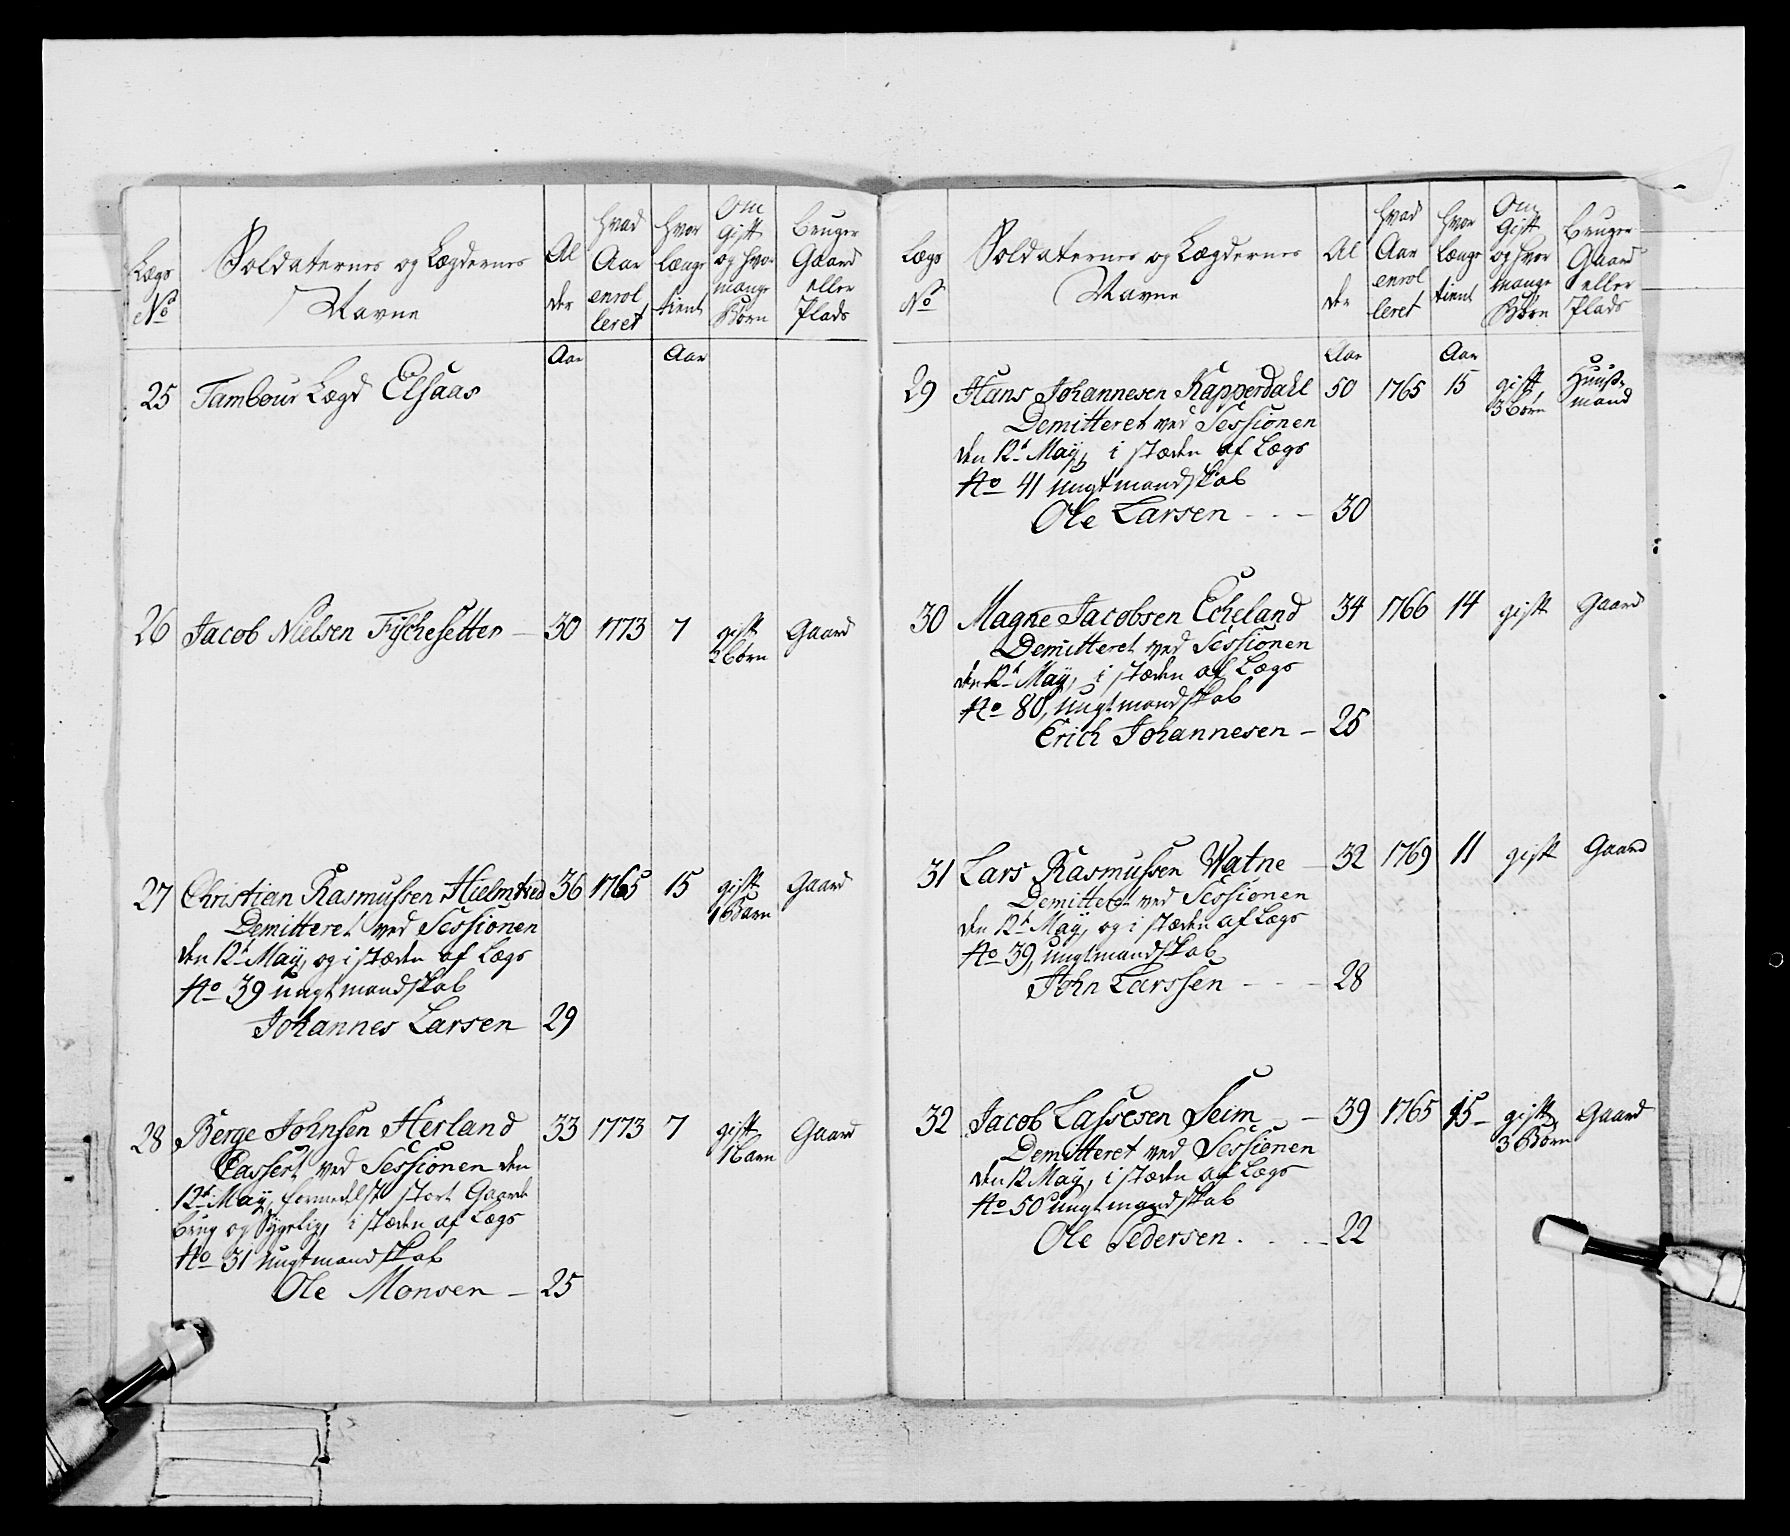 Lægs
No
Soldaternes og Lægdernes
Navne
Al
der
hvad
Aar
enrol
leret
hvor
længe
tient
Om
Gift
og hvor
mange
Børn
Bruger
Gaard
eller
Plads
Aar
Aar
25 Tambour Lægd Elsaas
26 Jacob Nielsen Fyschesetter — 30 1773 7 gift Gaard
2 Børn
27 Christian Rasmussen Hielmtved 36 1765 15 gift Gaard
1 Barn
Demitteret ved Sessionen
den 12t May, og i stæden af Lægs
No 39 ungtmandskab
Johannes Larsen 29
28 Berge Johnsen Herland 33 1773 7 gift Gaard
1 barn
Casseret ved Sessionen den
12t May, formedelst stort Gaards
brug og Sygelig, i stæden af Lægs
No 31 ungtmandskab
Ole Monsen — 25
Lægs
No
Soldaternes og Lægdernes
Navne
Al
der
hvad
Aar
enrol
leret
hvor
længe
tient
Om
Gift
og hvor
mange
Børn
Bruger
Gaard
eller
Plads
Aar
Aar
29 Hans Johannesen Kapperdahl 50 1765 15 gift, Huus-
3 børn mand
Demitteret ved Sessionen
den 12t May, i stæden af Lægs
No 41 ungtmandskab
Ole Larsen - - - 30
30 Magne Jacobsen Echeland 34 1766 14 gift Gaard
Demitteret ved Sessionen
den 12t May, i stæden af Lægs
No 80, ungtmandskab
Erich Johannesen — 25
31 Lars Rasmussen Watne — 32 1769 11 gift Gaard
Demitteret ved Sessionen
den 12t May, og i stæden af Lægs
No 39, ungtmandskab
John Larssen - - - 28
32 Jacob Lassesen Seim - - 39 1765 15 - gift Gaard
3 Børn
Demitteret ved Sessionen
den 12 May, i stæden af Lægs
No 50 ungtmandskab
Ole Pedersen . . . - 22